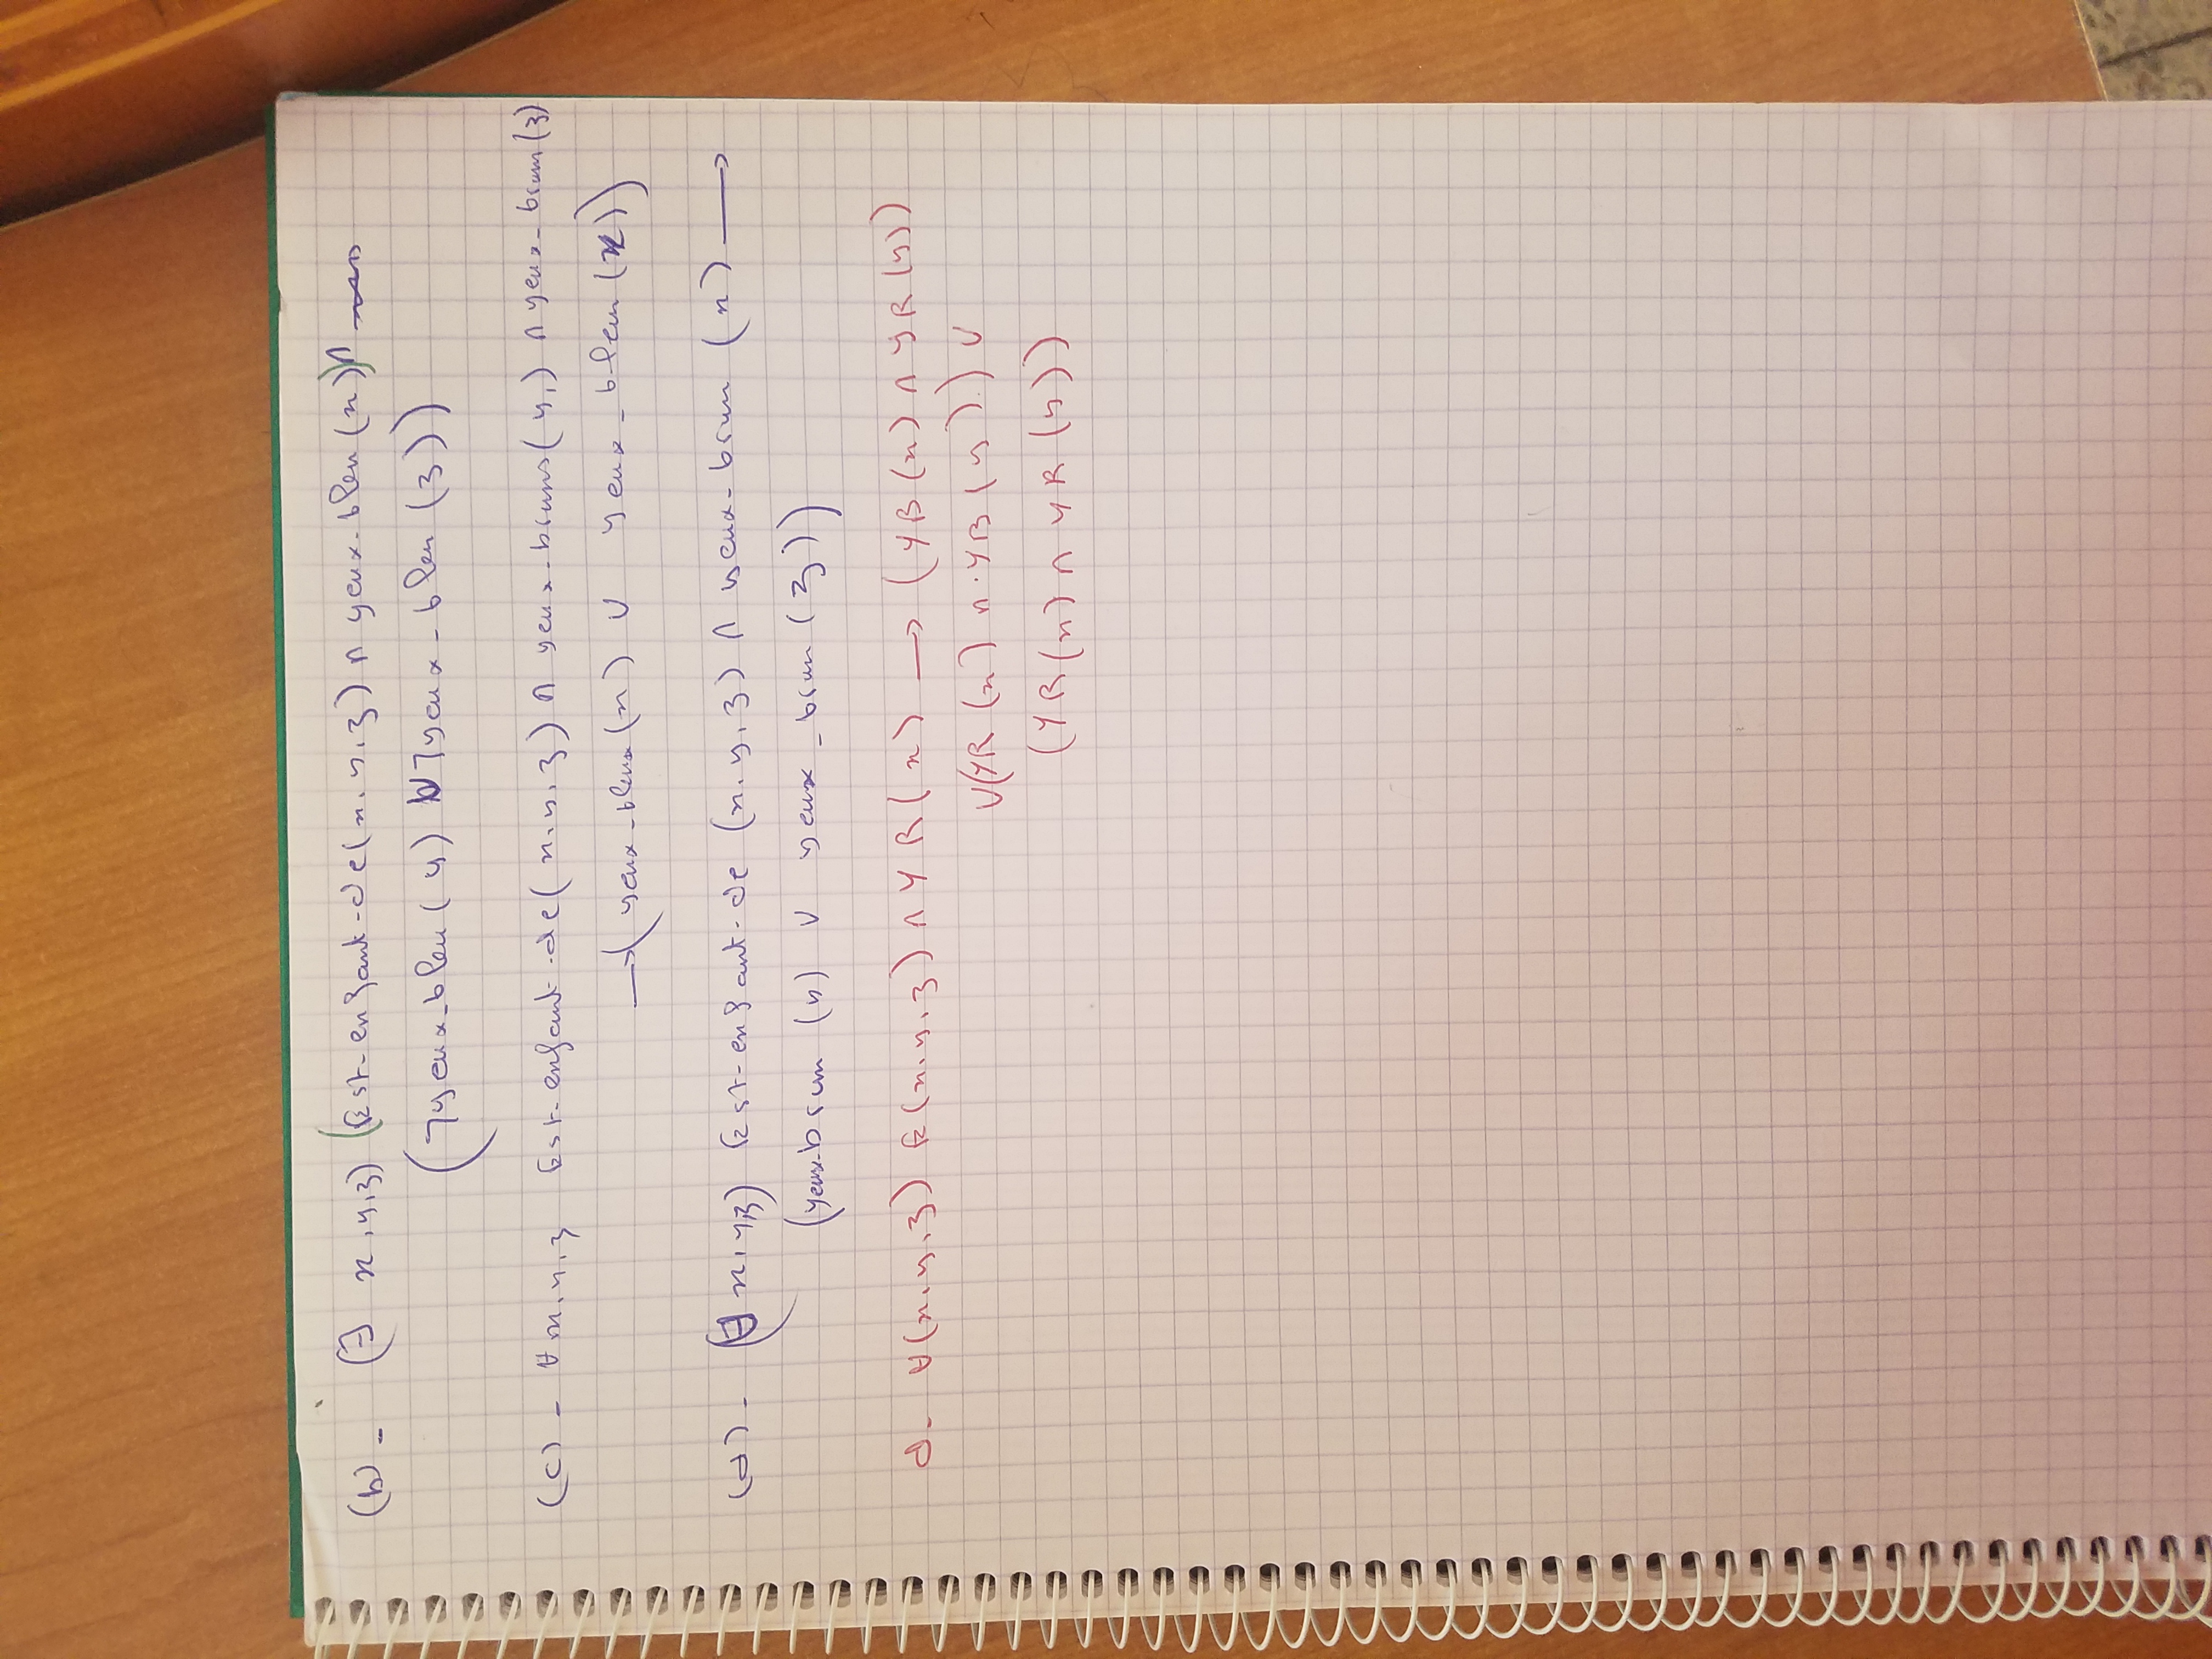 (b) - (∃ x,y,z) (Est-enfant-de(x,y,z) ∧ yeux-bleu(x)) ∧
(¬yeux-bleu(y) ∧ ¬yeux-bleu(z))
(c) - ∀ x,y,z Est-enfant-de(x,y,z) ∧ yeux-bruns(y) ∧ yeux-brun(z)
→ (yeux-bleux(x) ∨ yeux-bleu(x))
(d) - (∀ x,y,z) Est-enfant-de (x,y,z) ∧ yeux-brun (x) →
(yeux-brun (y) ∨ yeux-brun (z))
d- ∀(x,y,z) E(x,y,z) ∧ YR(x) → (YB(x) ∧ YR(y))
∨(YR(x) ∧ YB(y)) ∨
(YR(x) ∧ YR(y))